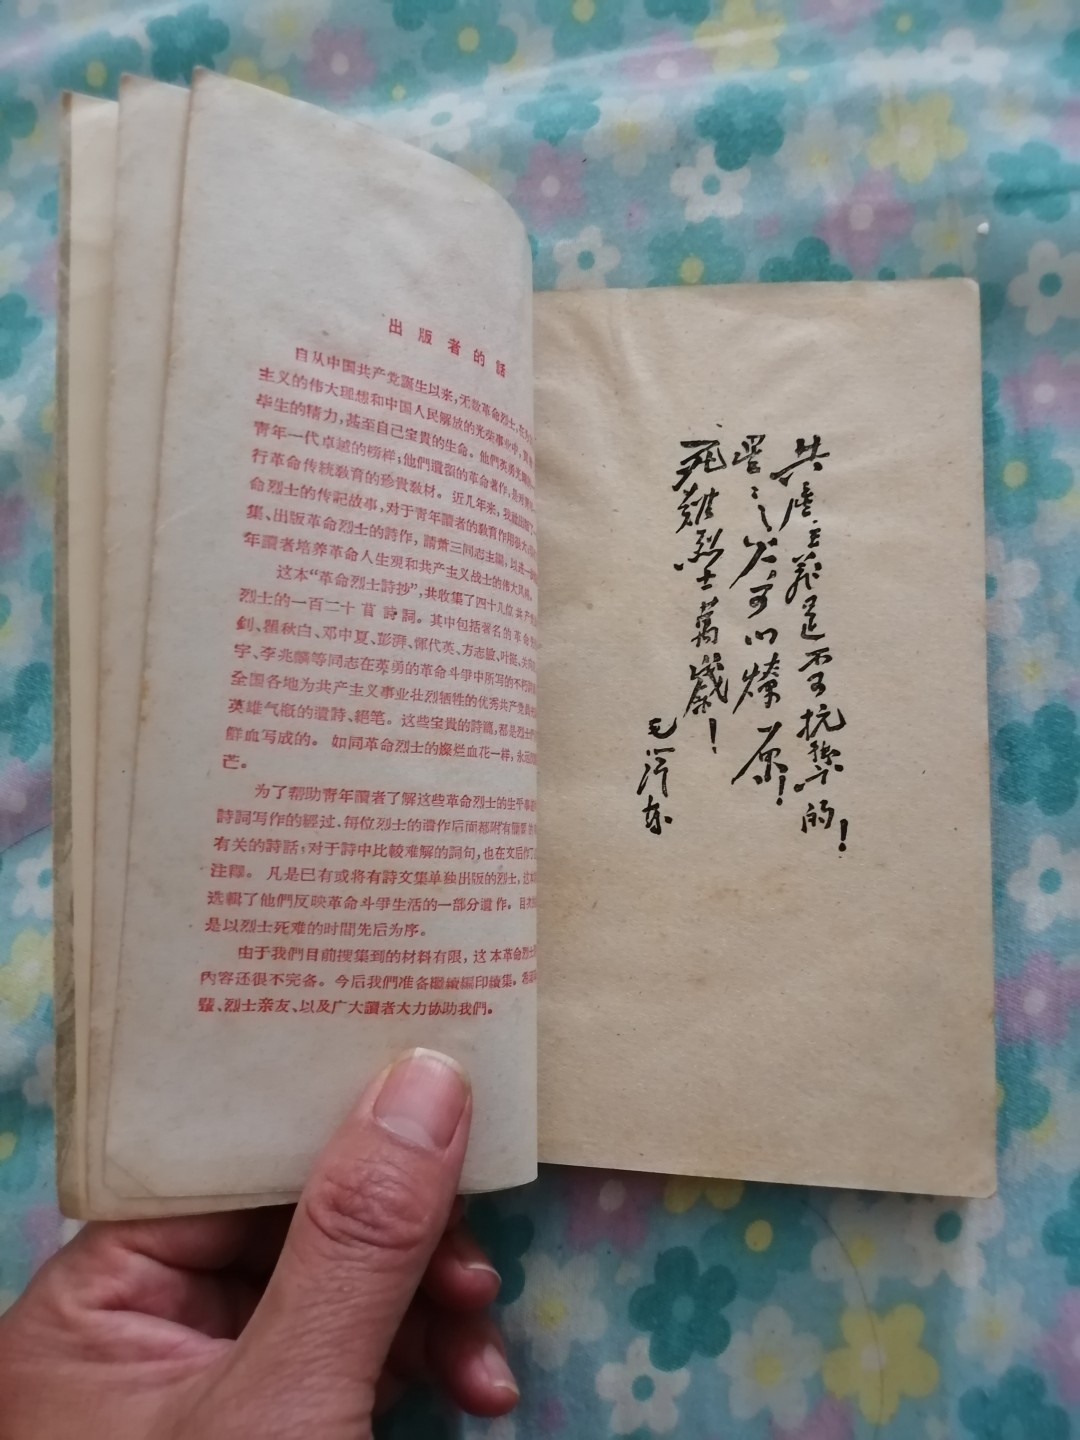 出版者的話
自从中国共产党誕生以来，无数革命烈士，在为
主义的伟大理想和中国人民解放的光荣事业中，
毕生的精力，甚至自己宝貴的生命。他們英勇
青年一代卓越的榜样；他們遺留的革命著作，是
行革命传統敎育的珍貴敎材。近几年来，我
命烈士的传記故事，对于青年讀者的敎育作用很大
集、出版革命烈士的詩作，請萧三同志主編，以
年讀者培养革命人生观和共产主义战士的伟大风
这本“革命烈士詩抄”，共收集了四十九位共产
烈士的一百二十首詩詞。其中包括著名的革命
釗、瞿秋白、邓中夏、彭湃、恽代英、方志敏、叶挺、
宇、李兆麟等同志在英勇的革命斗爭中所写的不朽
全国各地为共产主义事业壮烈牺牲的优秀共产党
英雄气概的遺詩、絕笔。这些宝貴的詩篇，都是烈士
鮮血写成的。如同革命烈士的燦烂血花一样，永远
芒。
为了帮助青年讀者了解这些革命烈士的生平事
詩詞写作的經过，每位烈士的遺作后面都附有
有关的詩話；对于詩中比較难解的詞句，也在文后作了
注釋。凡是已有或将有詩文集单独出版的烈士，这
选輯了他們反映革命斗爭生活的一部分遺作，目
是以烈士死难的时間先后为序。
由于我們目前搜集到的材料有限，这本革命烈士
內容还很不完备。今后我們准备繼續編印續集，
、烈士亲友、以及广大讀者大力协助我們。
共產主義是不可抗禦的！
星星之火可以燎原！
死難烈士萬歲！
毛澤东